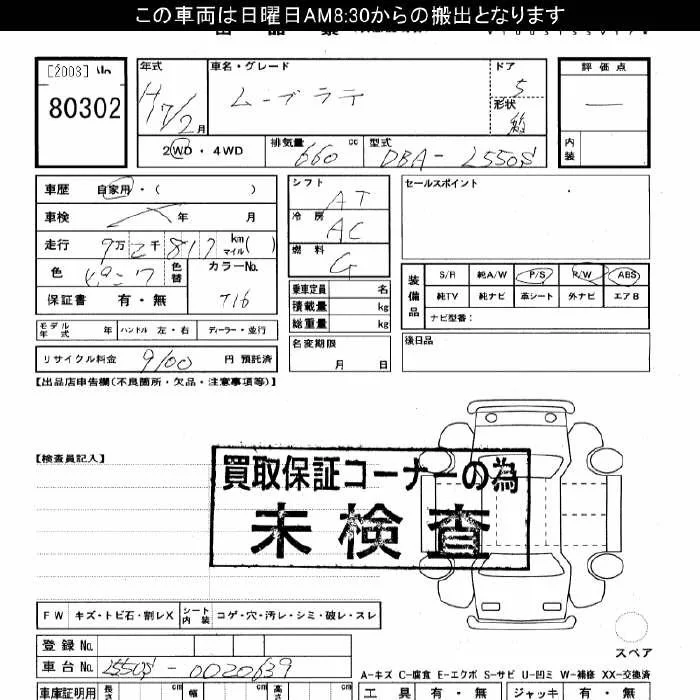 この車両は日曜日AM8:30からの搬出となります
[2003]
80302
年式 車名・グレード ドア 評価点
H17/2月 ムーブラテ 5 —
形状 箱
2WD・4WD 排気量 660 cc 型式 DBA-L550S 内装
車歴 自家用・( ) シフト AT セールスポイント
車検 年 月 冷房 AC
走行 9万2千817 km マイル( ) 燃料 G
色 ピンク 色替 カラーNo. T16
保証書 有・無
装備品 S/R 純A/W P/S R/W ABS
純TV 純ナビ 革シート 外ナビ エアB
ナビ型番:
乗車定員 名
積載量 kg
総重量 kg
モデル年式 年 ハンドル 左・右 ディーラー・並行
名変期限 月 日
後日品
リサイクル料金 9100 円 預託済
【出品店申告欄(不良箇所・欠品・注意事項等)】
【検査員記入】
買取保証コーナーの為
未検査
FW キズ・トビ石・割レX シート内装 コゲ・穴・汚レ・シミ・破レ・スレ
登録No.
車台No. L550S-0020639
スペア
A-キズ C-腐食 E-エクボ S-サビ U-凹ミ W-補修 XX-交換済
車庫証明用 長さ cm 幅 cm 高さ cm
工具 有・無 ジャッキ 有・無